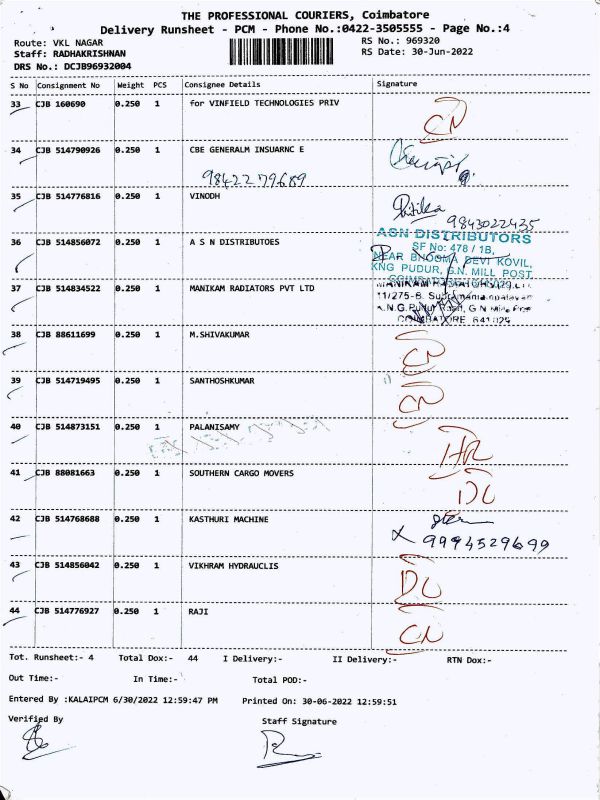 THE PROFESSIONAL COURIERS, Coimbatore
Delivery Runsheet - PCM - Phone No.:0422-3505555 - Page No.:4
Route: VKL NAGAR
Staff: RADHAKRISHNAN
DRS No.: DCJB96932004
RS No.: 969320
RS Date: 30-Jun-2022
S No Consignment No Weight PCS Consignee Details Signature
33 CJB 160690 0.250 1 for VINFIELD TECHNOLOGIES PRIV
CN
34 CJB 514790926 0.250 1 CBE GENERALM INSUARNC E
9842279689
35 CJB 514776816 0.250 1 VINODH
9843022435
36 CJB 514856072 0.250 1 A S N DISTRIBUTOES
ASN DISTRIBUTORS
SF No: 478 / 1B,
NEAR BHOOMA DEVI KOVIL,
KNG PUDUR, G.N. MILL POST,
37 CJB 514834522 0.250 1 MANIKAM RADIATORS PVT LTD
11/275-B,
COIMBATORE 641029
38 CJB 88611699 0.250 1 M.SHIVAKUMAR
CN
39 CJB 514719495 0.250 1 SANTHOSHKUMAR
CN
40 CJB 514873151 0.250 1 PALANISAMY
41 CJB 88081663 0.250 1 SOUTHERN CARGO MOVERS
DC
42 CJB 514768688 0.250 1 KASTHURI MACHINE
X 9994529699
43 CJB 514856042 0.250 1 VIKHRAM HYDRAUCLIS
DC
44 CJB 514776927 0.250 1 RAJI
CN
Tot. Runsheet:- 4 Total Dox:- 44 I Delivery:- II Delivery:- RTN Dox:-
Out Time:- In Time:- Total POD:-
Entered By :KALAIPCM 6/30/2022 12:59:47 PM Printed On: 30-06-2022 12:59:51
Verified By Staff Signature